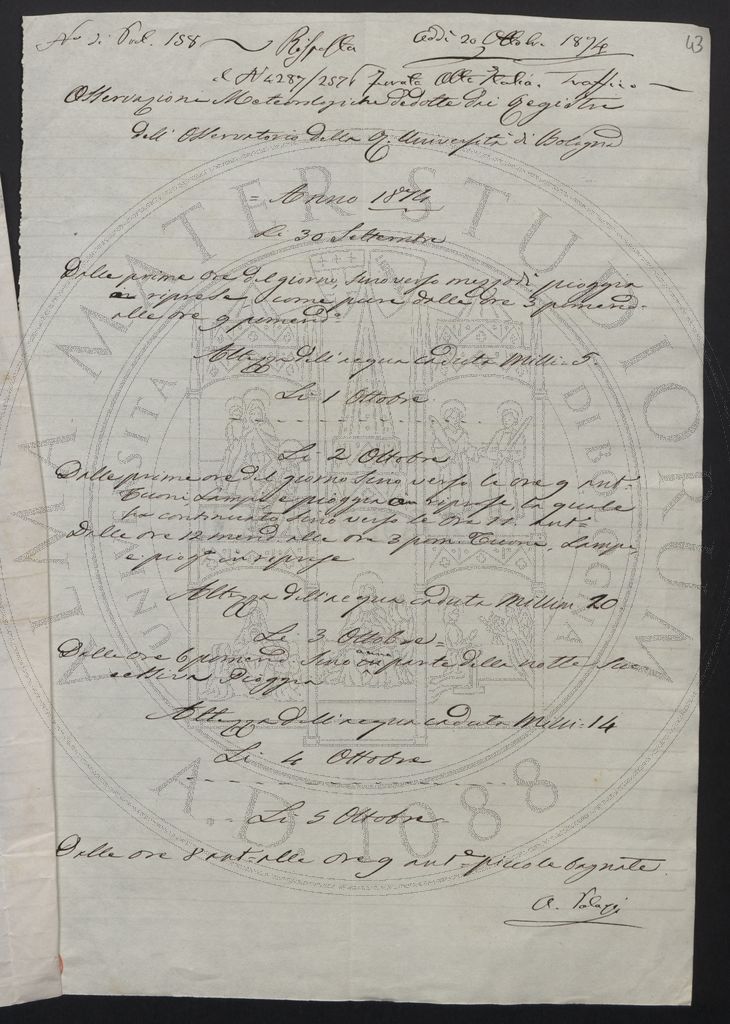 43
N. di Prot. 158 Risposta Addì 20 Ottobre 1874
al N 4287/2576 Ferrate Alta Italia. Traffico
Osservazione Meteorologiche dedotte dai Registri
dell'Osservatorio della R. Università di Bologna
= Anno 1874
Li 30 Settembre
Dalle prime ore del giorno, sino verso mezzodì pioggia
a riprese, come pure dalle ore 3 pomerid.
alle ore 9 pomerid.
Altezza dell'acqua caduta Milli= 5.
Li 1 Ottobre
Li 2 Ottobre
Dalle prime ore del giorno sino verso le ore 9 ant=
Tuoni, Lampi e pioggia a riprese, la quale
ha continuato sino verso le ore 11. ant=
Dalle ore 12 merid. alle ore 3 pom. Tuoni, Lampi,
e piogª in riprese
Altezza dell'acqua caduta Millim 20
Li 3 Ottobre=
Dalle ore 6 pomerid. sino parte della notte suc=
cessiva Pioggia
Altezza dell'acqua caduta Milli= 14
Li 4 Ottobre
Li 5 Ottobre
Dalle ore 8 ant= alle ore 9 antᵉ piccole bagnate.
A. Palagi
ALMA MATER STUDIORUM
A.D. 1088
UNIVERSITA DI BOLOGNA